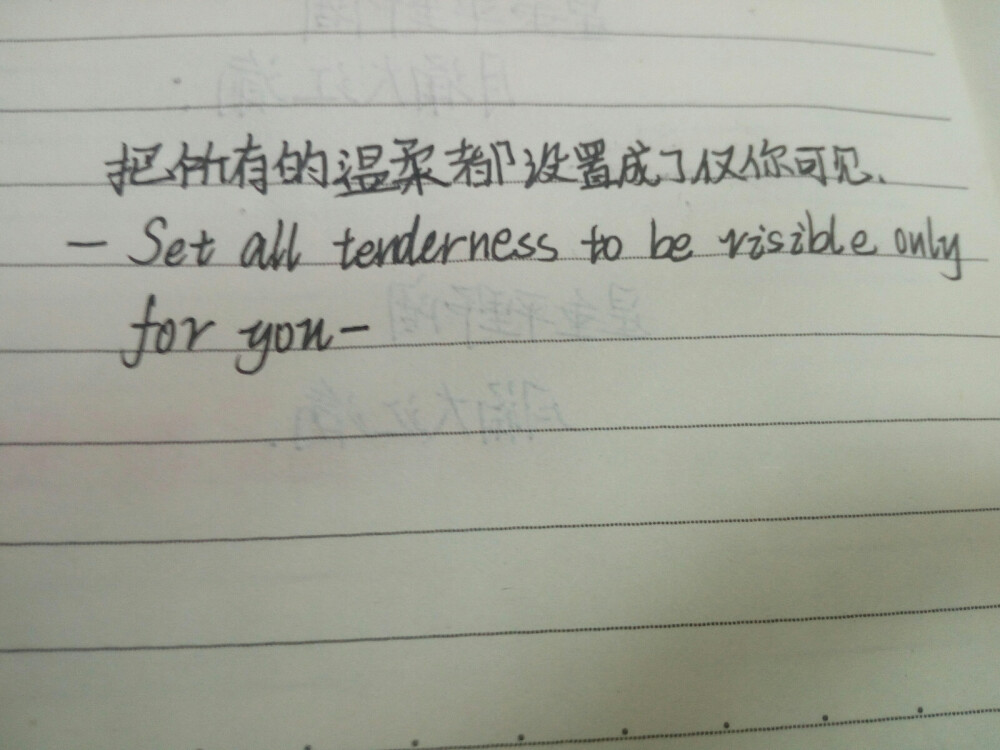 把所有的温柔都设置成了仅你可见.
— Set all tenderness to be visible only
for you —